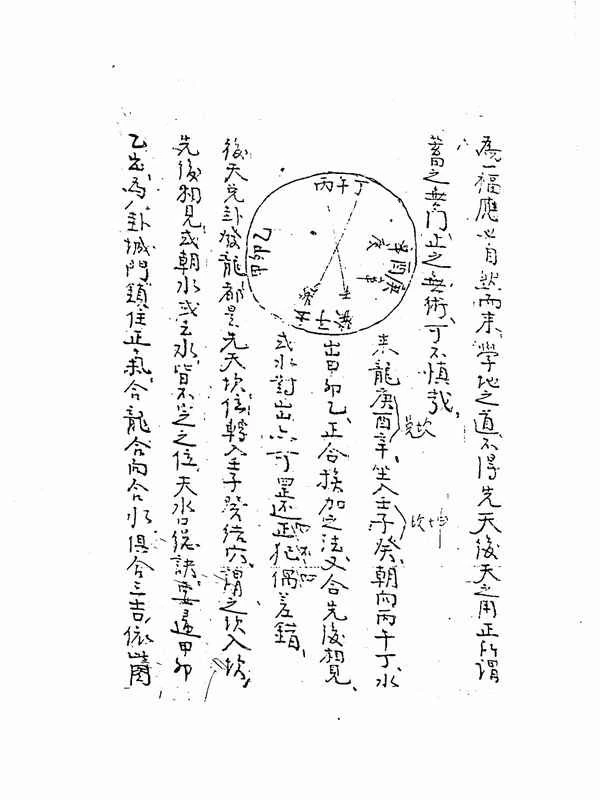 一福應必自然而來、學地之道不得先天後天之用正所謂
蓄之無門、止之無術、可不慎哉、
丙午丁
甲卯乙
庚酉辛
壬子癸
來龍庚酉辛、坐入壬子癸、朝向丙午丁、水
兌坎
坎坤
出甲卯乙、正合挨加之法、又合先後相見、
或水對出亦可、罡还正犯偶差錯、
後天兌卦發龍都是先天坎位轉入壬子癸結穴、謂之坎入坎、
先後相見、或朝水或去水、皆不之位、天水口總訣、要歸甲卯
乙出、為八卦城門鎖住正氣、合龍合向合水、俱合三吉、依圖